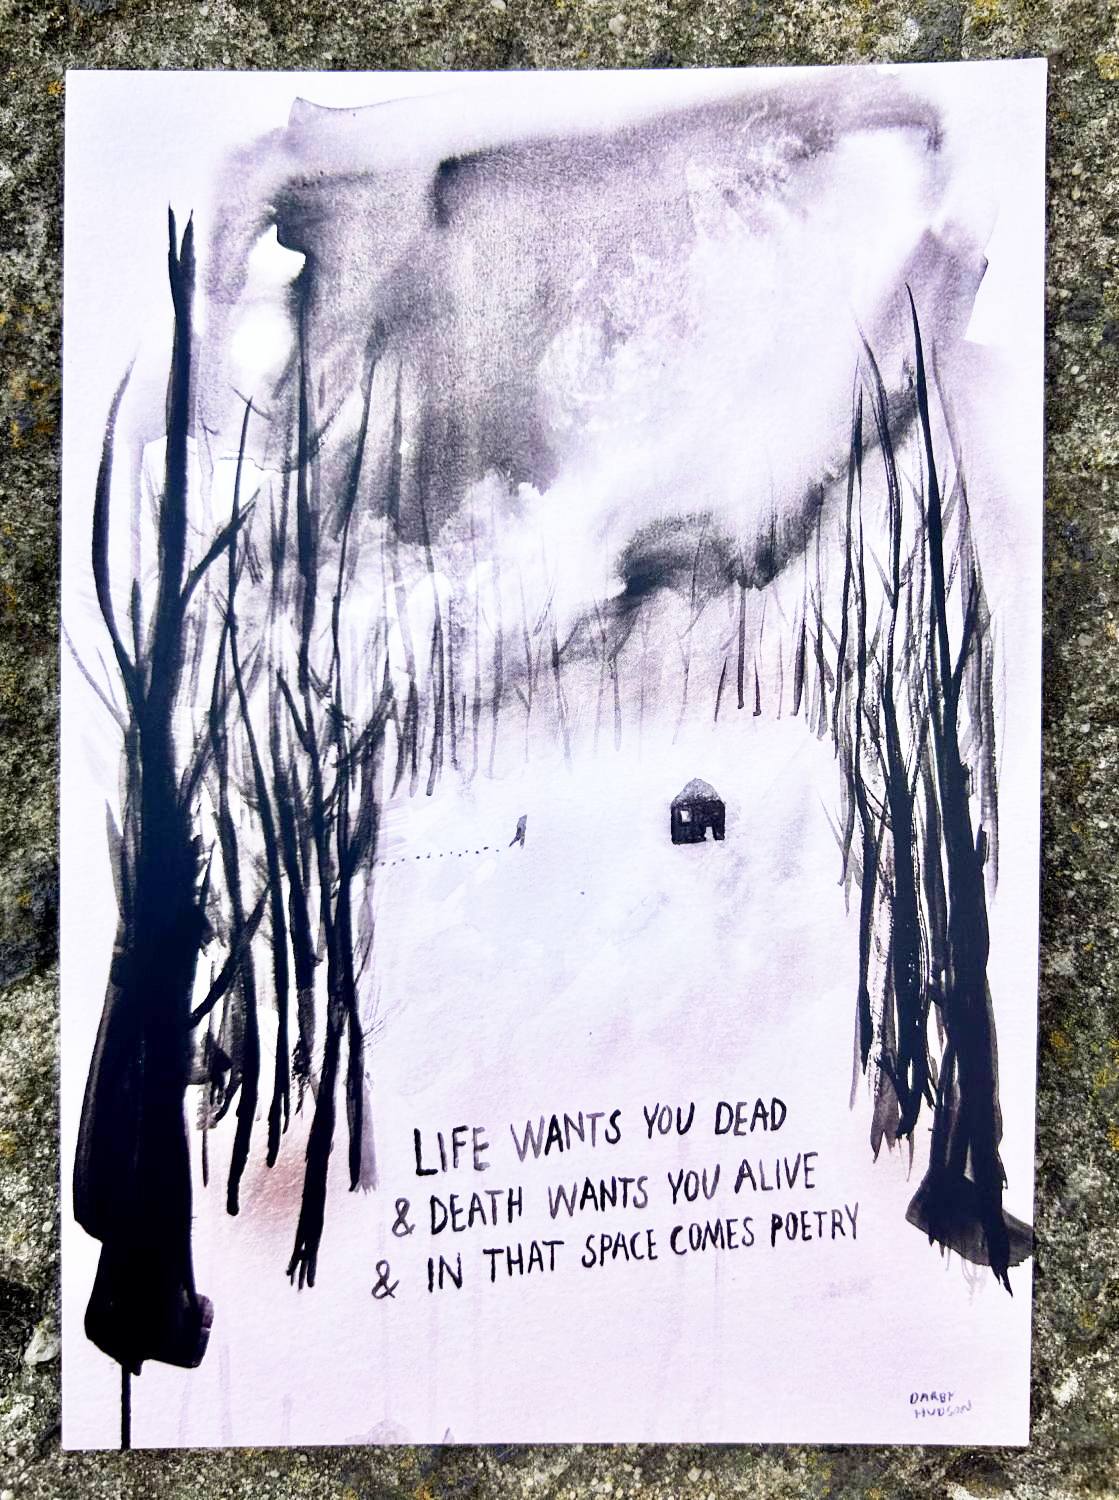 LIFE WANTS YOU DEAD
& DEATH WANTS YOU ALIVE
& IN THAT SPACE COMES POETRY
DARBY
HUDSON